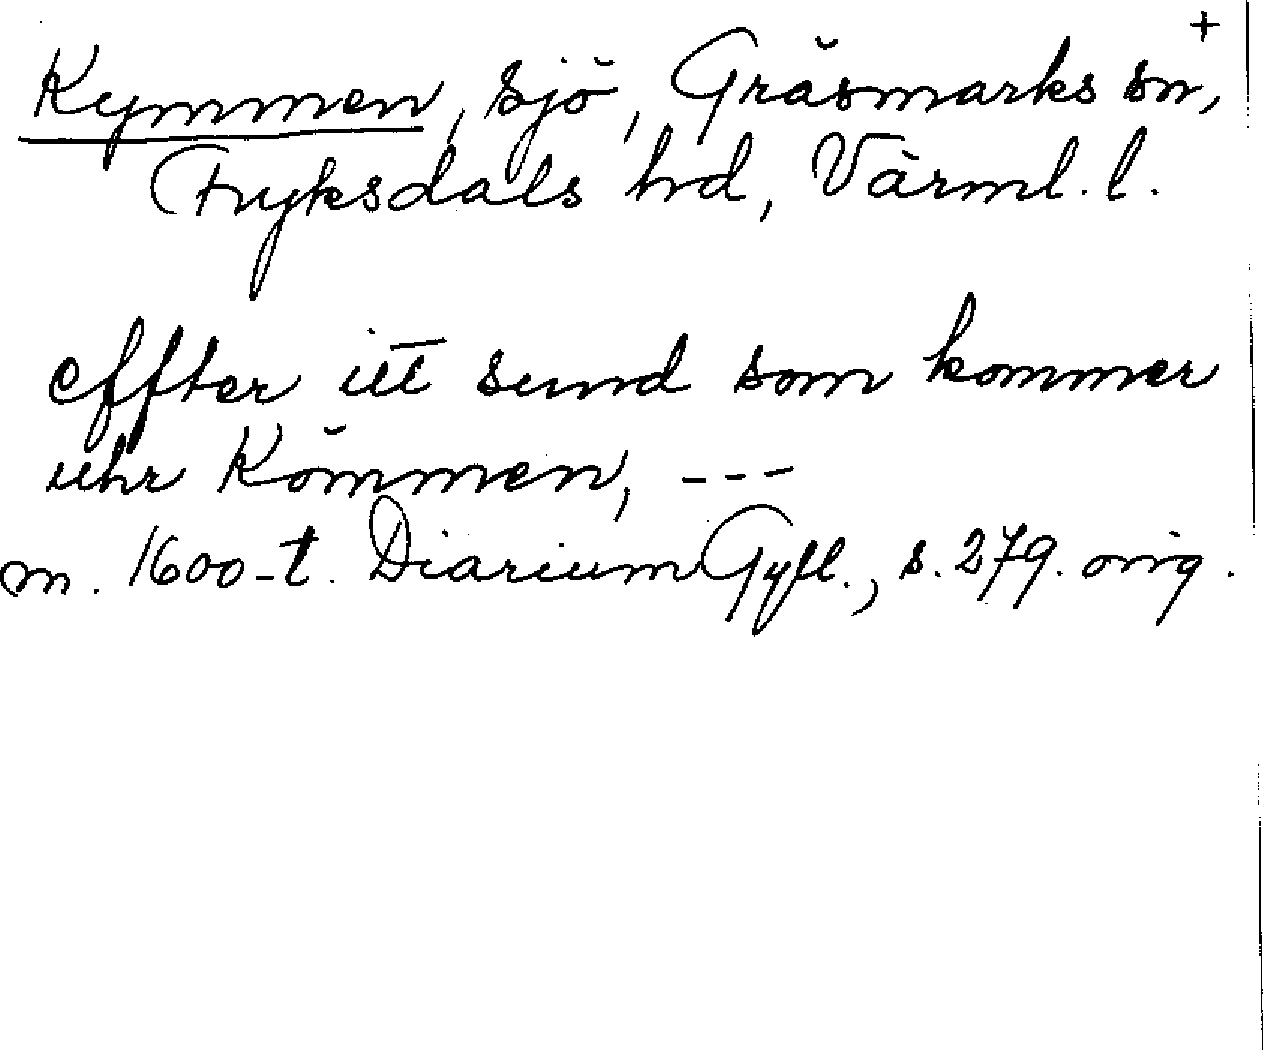 +
Kymmen, sjö, Gräsmarks sn,
Fryksdals hd, Värml. l.
effter itt sund som kommer
uhr Kömmen, ---
m. 1600-t. Diarium Gyll., s. 279. orig.